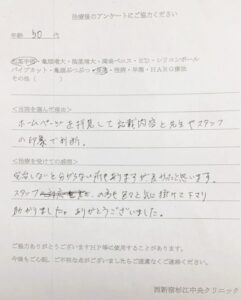 治療後のアンケートにご協力ください
年齢 50 代
包茎手術・亀頭増大・陰茎増大・陰茎・ED・シリコンボール
パイプカット・亀頭ぶつぶつ・性病・早漏・HARG療法
その他（ ）
<当院を選んだ理由>
ホームページを拝見して記載内容と先生やスタッフ
の印象で判断。
<治療を受けての感想>
分からない所もありますが良かったと思います。
スタッフ の方も色々と気に掛けて下さり
助かりました。ありがとうございました。
ご協力ありがとうございますHP等に使用することがあります。
今後をご心配、ご不明な点がございましたらご遠慮なくご連絡ください。
西新宿杉江中央クリニック